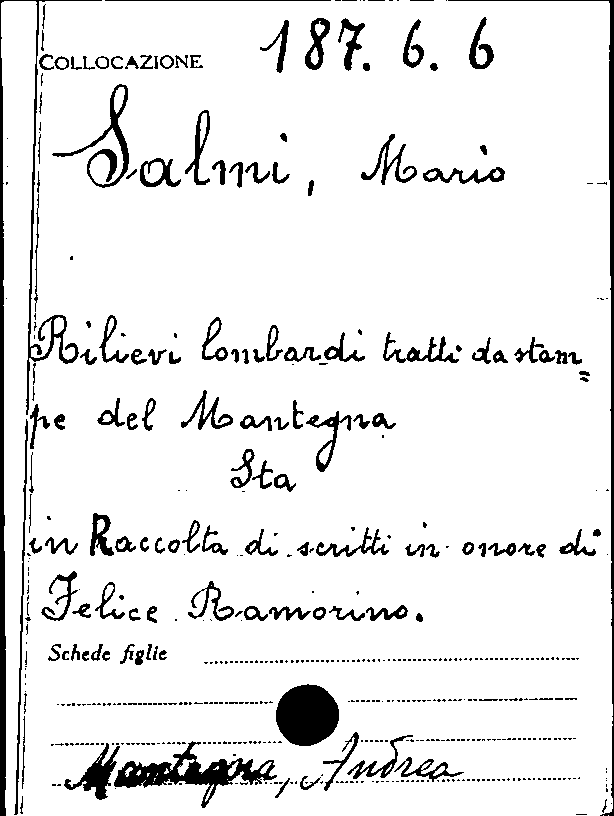 COLLOCAZIONE 187. 6. 6
Salmi, Mario
Rilievi lombardi tratti da stam=
pe del Mantegna
Sta
in Raccolta di scritti in onore di
Felice Ramorino.
Schede figlie
Mantegna, Andrea